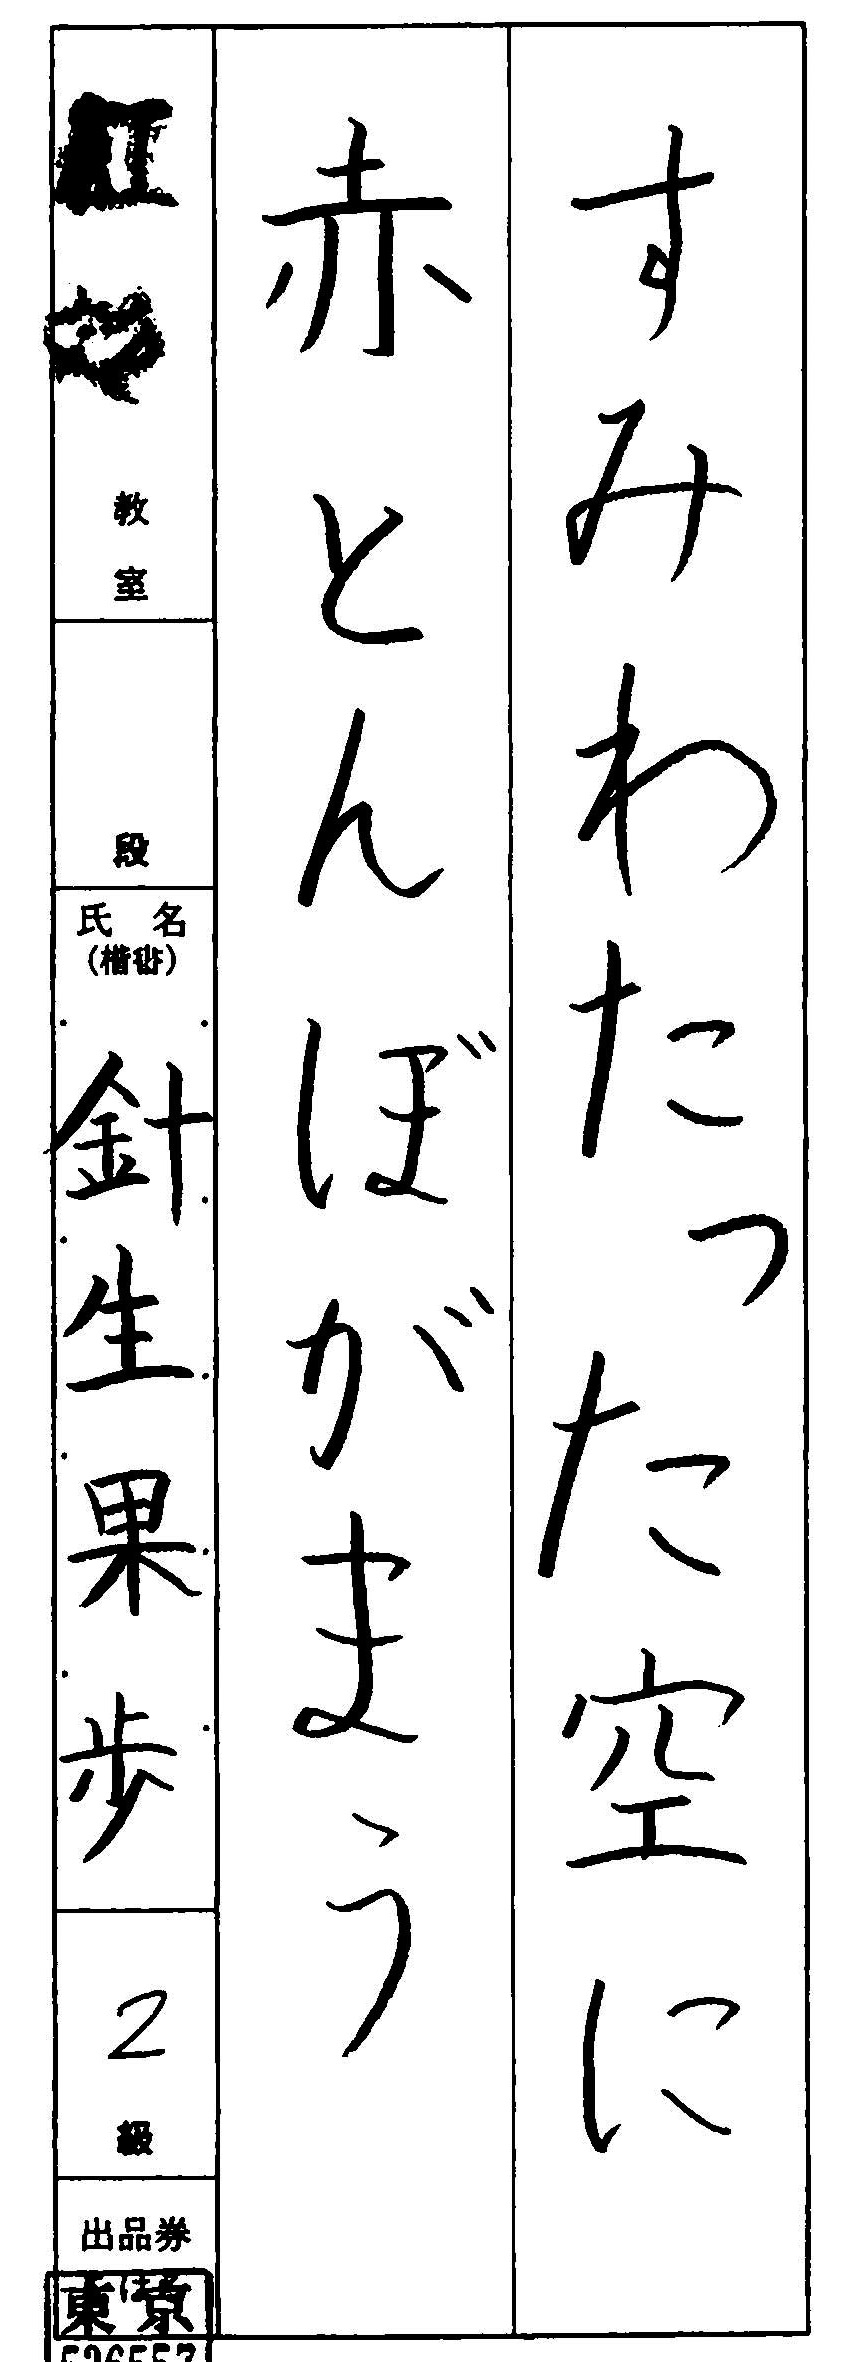 すみわたった空に
赤とんぼがまう
教室
段
氏名
(楷書)
針生果歩
2
級
出品券
東京